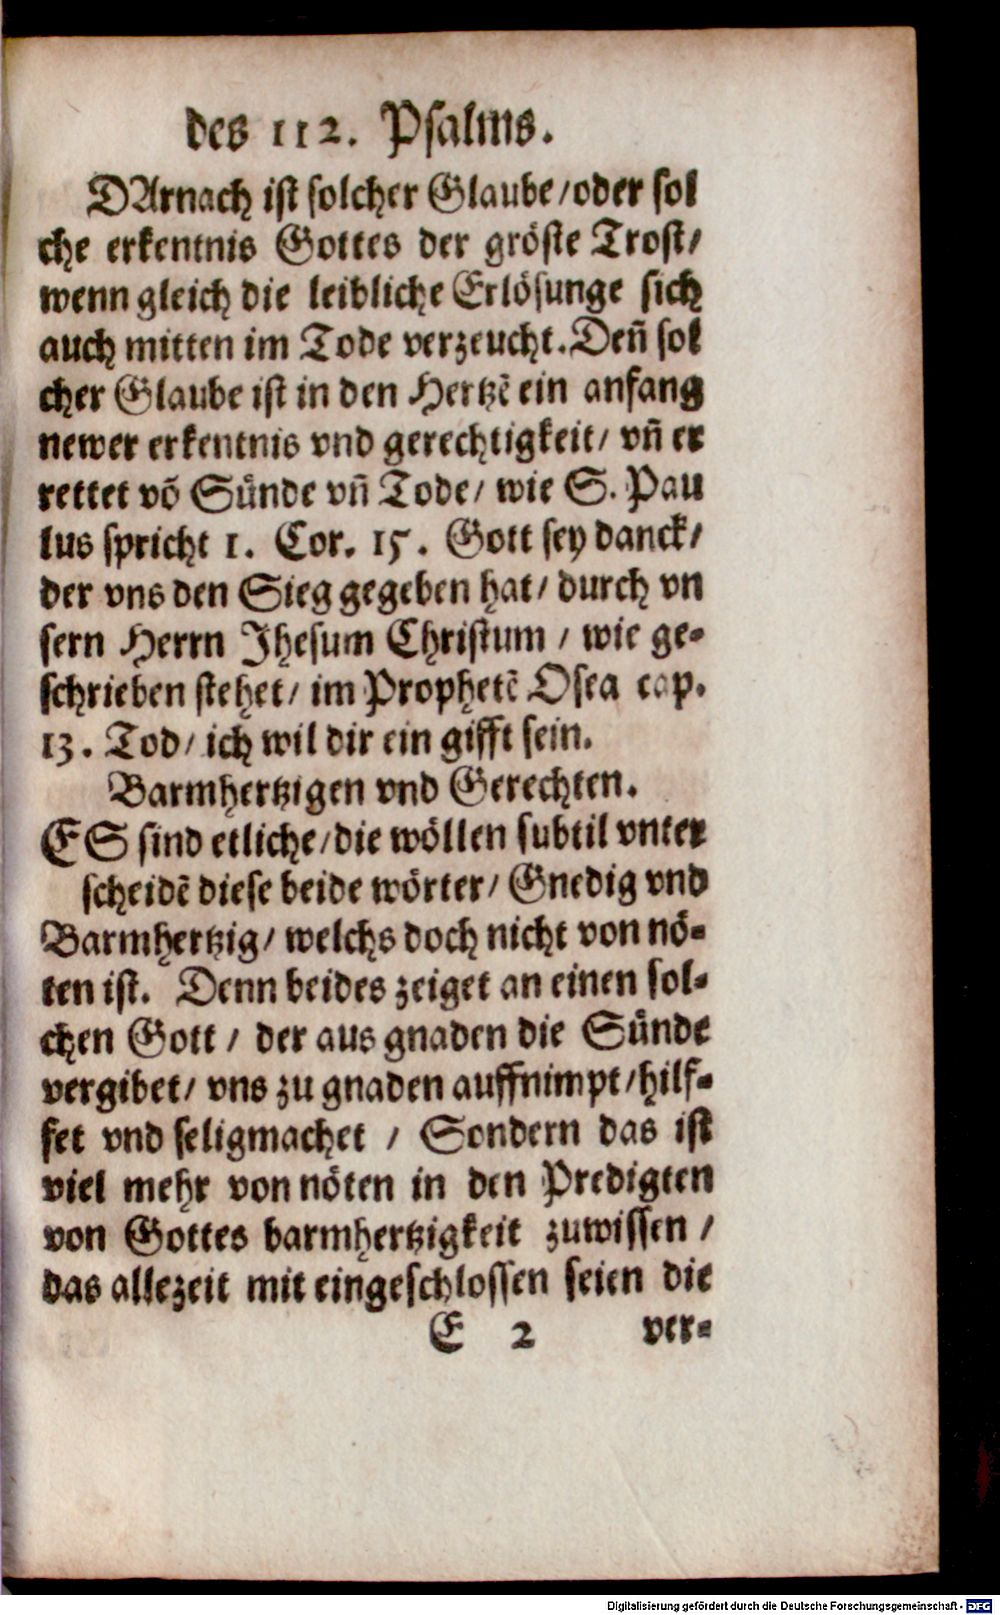 des 112. Psalms.
DArnach ist solcher Glaube/oder sol
che erkentnis Gottes der gröste Trost/
wenn gleich die leibliche Erlösunge sich
auch mitten im Tode verzeucht. Deñ sol
cher Glaube ist in den Hertzẽ ein anfang
newer erkentnis vnd gerechtigkeit/ vñ er
rettet võ Sünde vñ Tode/ wie S. Pau
lus spricht 1. Cor. 15. Gott sey danck/
der vns den Sieg gegeben hat/ durch vn
sern Herrn Jhesum Christum / wie ge-
schrieben stehet/ im Prophetẽ Osea cap.
13. Tod/ ich wil dir ein gifft sein.
Barmhertzigen vnd Gerechten.
ES sind etliche/die wöllen subtil vnter
scheidẽ diese beide wörter/ Gnedig vnd
Barmhertzig/ welchs doch nicht von nö-
ten ist. Denn beides zeiget an einen sol-
chen Gott / der aus gnaden die Sünde
vergibet/ vns zu gnaden auffnimpt/hilf-
fet vnd seligmachet / Sondern das ist
viel mehr von nöten in den Predigten
von Gottes barmhertzigkeit zuwissen /
das allezeit mit eingeschlossen seien die
E 2 ver-
Digitalisierung gefördert durch die Deutsche Forschungsgemeinschaft - DFG